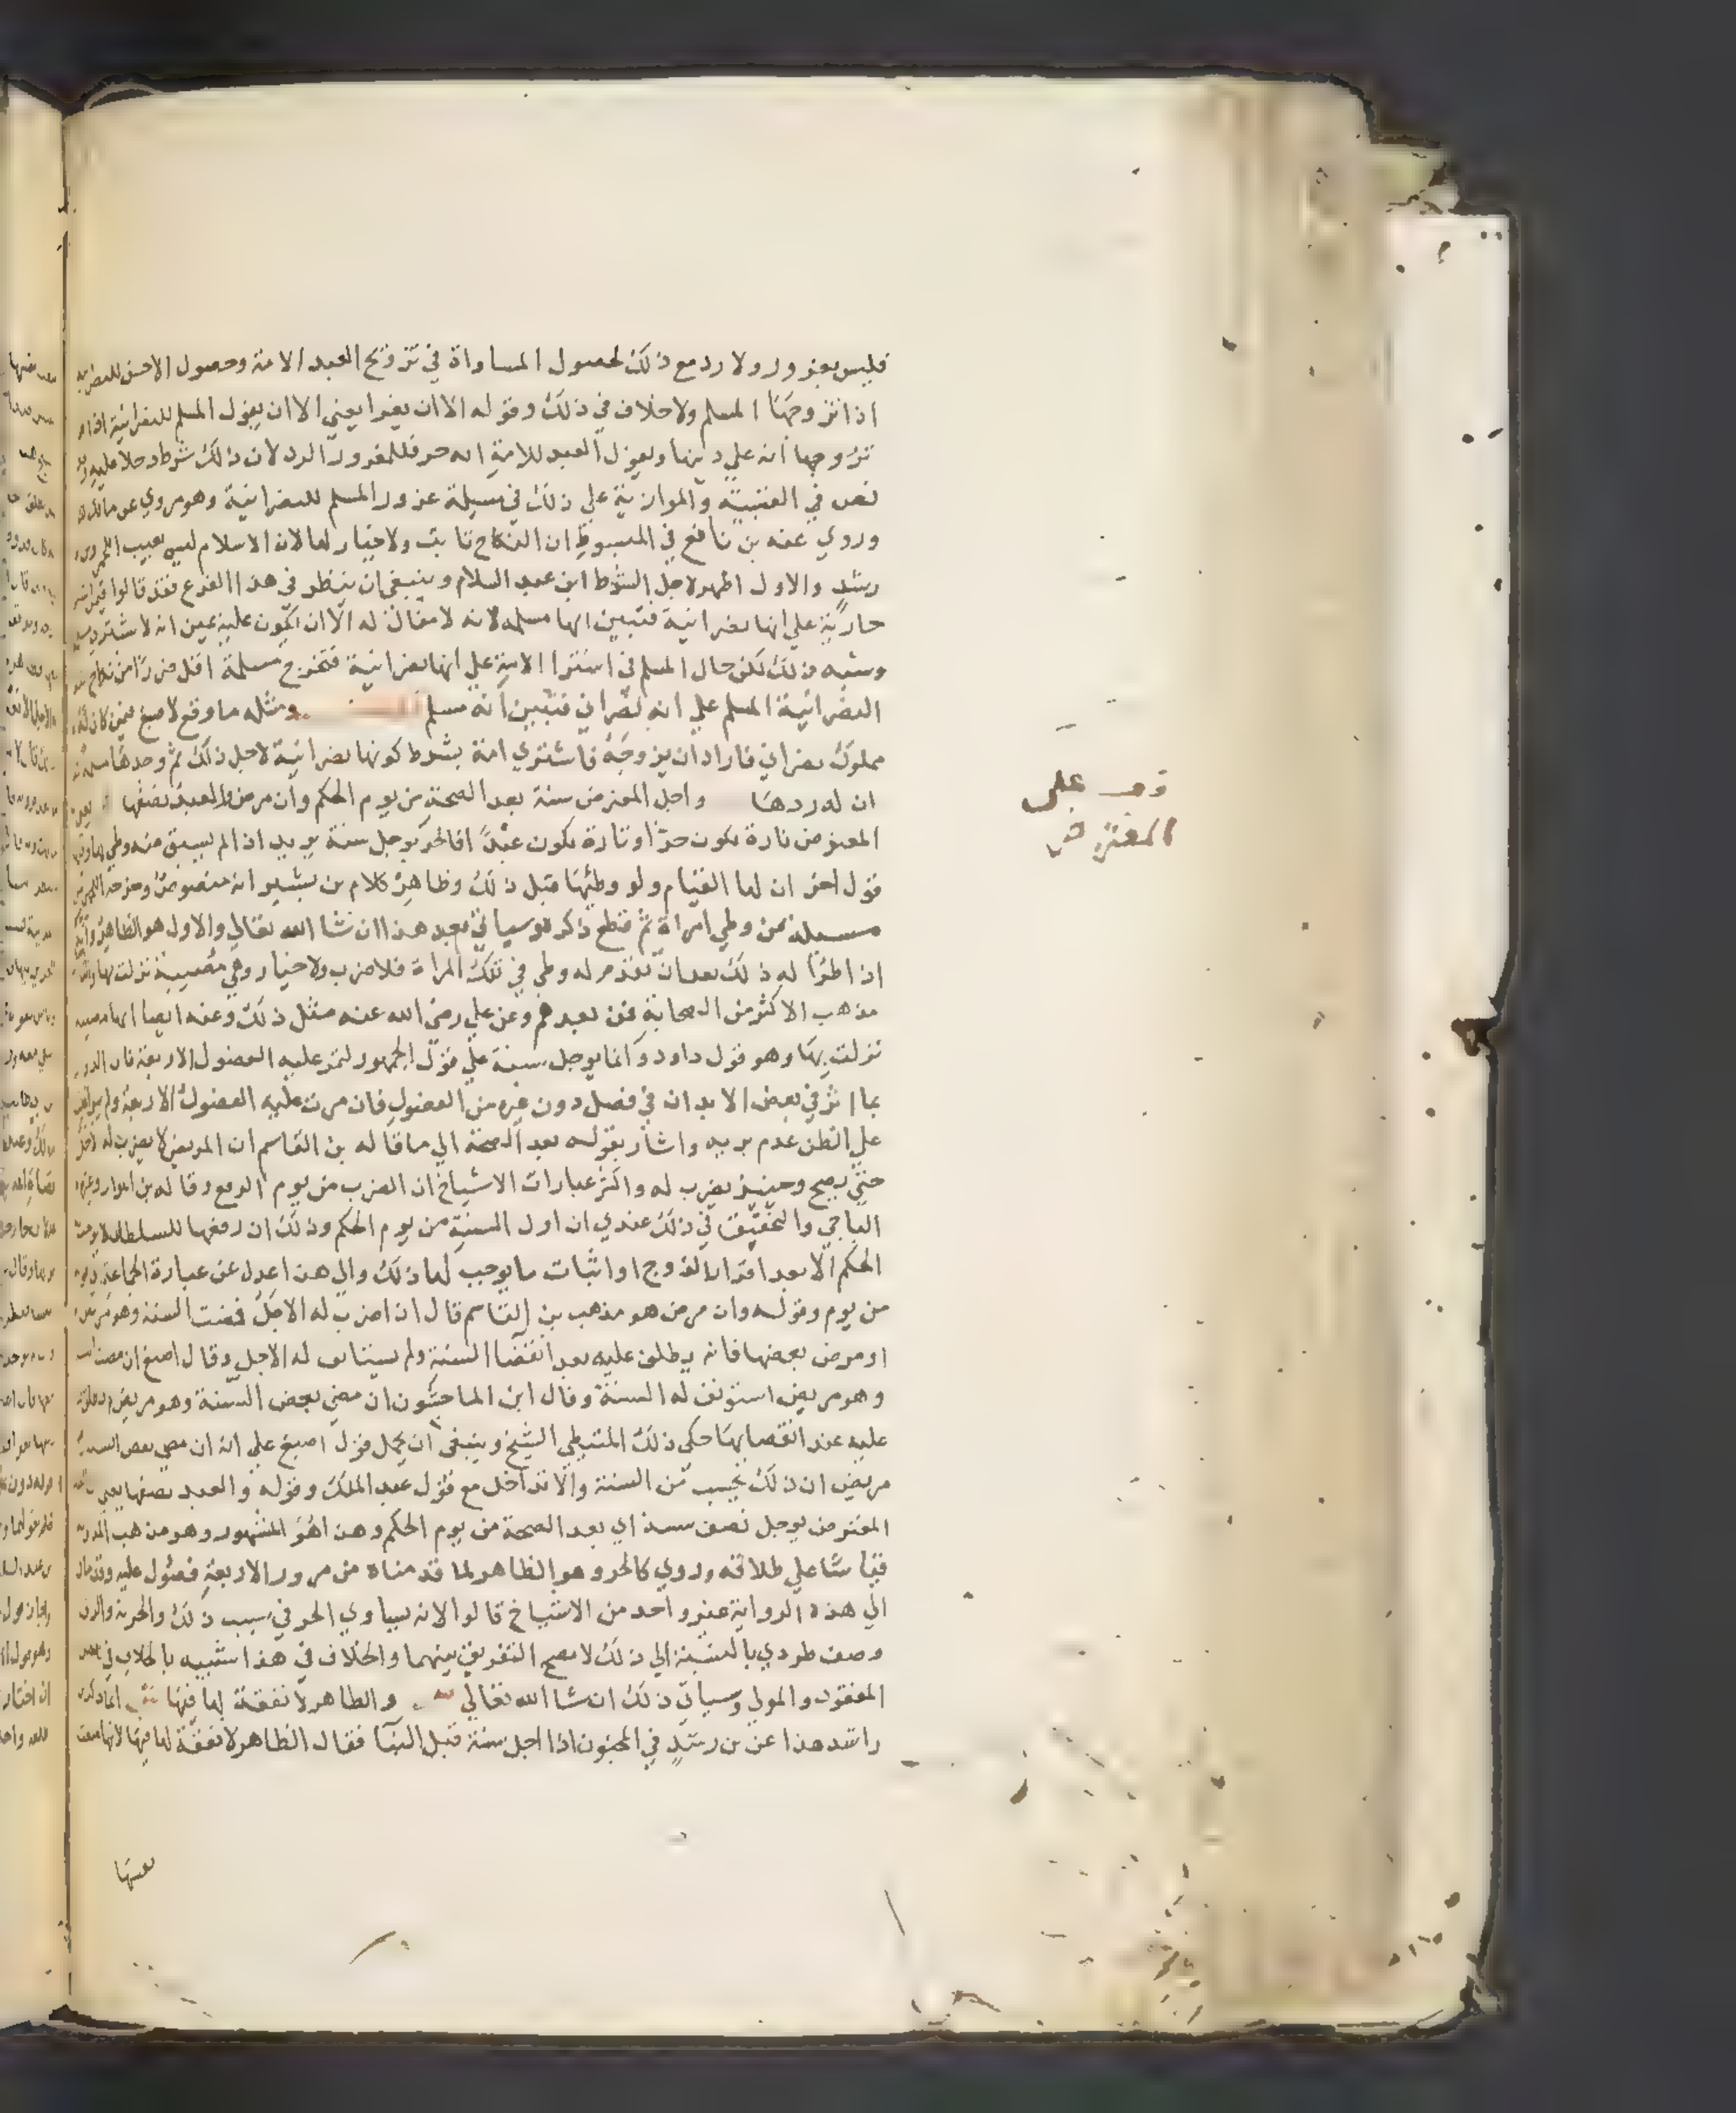 فليس بغرور ولا رد مع ذلك لحصول المساواة في تزويج العبد الامة وحصول الاحسن للنصرانية
اذا تزوجها المسلم ولا خلاف في ذلك وقوله الا ان يغرا يعني الا ان يقول المسلم للنصرانية اذا
تزوجها انه علي دينها ويقول العبد للامة انه حر فللمغرور الرد لان ذلك شرط دخلا عليه
نص في العتبية والموازنية علي ذلك في مسيلة غرور المسلم للنصرانية وهو مروي عن مالك
وروي عنه بن نافع في المبسوط ان النكاح ثابت ولا خيار لها لان الاسلام ليس بعيب
رشد والاول اظهر لاجل الشرط ابن عبد السلام وينبغي ان ينظر في هذا الفرع فقد قالوا فيمن اشتري
جارية علي انها نصرانية فتبين انها مسلمه لانه لا مقال له الا ان يكون عليه يمين انه لا يشتري
وشبه ذلك لكن حال المسلم في اشترا الامة علي انها نصرانية فتخرج مسلمة اقل ضررا من نكاح
النصرانية المسلم علي انه نصراني فتبين انه مسلم ومثله ما وقع لاصبغ فيمن كان له
مملوك نصراني فاراد ان يزوجه فاشتري امة بشرط كونها نصرانية لاجل ذلك ثم وجدها مسلمة
ان له ردها واجل المعترض سنة بعد الصحة من يوم الحكم وان مرض والعبد نصفها يعني
المعترض تارة يكون حرا وتارة يكون عبدا فالحر يوجل سنة يريد اذا لم يسبق منه وطي لها
قول اخر ان لها القيام ولو وطئها قبل ذلك وظاهر كلام بن بشير انه منصوص وخرجه اللخمي
مسيلة من وطي امراة ثم قطع ذكره وسياتي بعد هذا ان شا الله تعالي والاول هو الظاهر
اذا طرا له ذلك بعد ان تقدم له وطي في تلك المراة فلا ضرب ولا خيار وهي مصيبة نزلت بها
مذهب الاكثر من الصحابة فمن بعدهم وعن علي رضي الله عنه مثل ذلك وعنه ايضا انها مصيبه
نزلت بها وهو قول داود وانما يوجل سنة علي قول الجمهور لتمر عليه الفصول الاربعة فان الدوا
بما اثر في بعض الابدان في فصل دون غيره من الفصول فان مرت عليه الفصول الاربعة ولم يبرا
علي الظن عدم بريه واشار بقوله بعد الصحة الي ما قاله بن القاسم ان المريض لا يضرب له اجل
حتي يصح وحينيذ يضرب له واكثر عبارات الاشياخ ان الضرب من يوم الرفع وقاله بن المواز وغيره
الباجي والتحقيق في ذلك عندي ان اول السنة من يوم الحكم وذلك ان رفعها للسلطان لا يوجب
الحكم الا بعد اقرار الزوج او اثبات ما يوجب لها ذلك والي هذا عدل عن عبارة الجماعة
من يوم وقوله وان مرض هو مذهب بن القاسم قال ان اضرب له الاجل فمضت السنة وهو مريض
او مرض بعضها فانه يطلق عليه بعد انقضا السنة ولم يستانف له الاجل وقال اصبغ ان مضت
وهو مريض استونف له السنة وقال ابن الماجشون ان مضي بعض السنة وهو مريض
عليه عند انقضايها حكي ذلك المتيطي الشيخ وينبغي ان يحمل قول اصبغ علي انه ان مضي بعض السنة
مريض ان ذلك يحسب من السنة والا تداخل مع قول عبد الملك وقوله والعبد نصفها يعني
المعترض يوجل نصف سنة اي بعد الصحة من يوم الحكم وهذا هو المشهور وهو مذهب المدونة
قياسا علي طلاقه وروي كالحر وهو الظاهر لما قدمناه من مرور الاربعة فصول عليه وقد مال
الي هذه الرواية غير واحد من الاشياخ قالوا لانه يساوي الحر في سبب ذلك والحرية والرق
وصف طردي بالنسبة الي ذلك لا يصح التفريق بينهما والخلاف في هذا شبيه بالخلاف في
المفقود والمولي وسياتي ذلك ان شا الله تعالي والظاهر لا نفقة لها فيها انما ذكر
راشد هذا عن بن رشد في المجنون اذا اجل سنة قبل البنا فقال الظاهر لا نفقة لها فيها لانها منعت
نفسها
قف على
المعترض